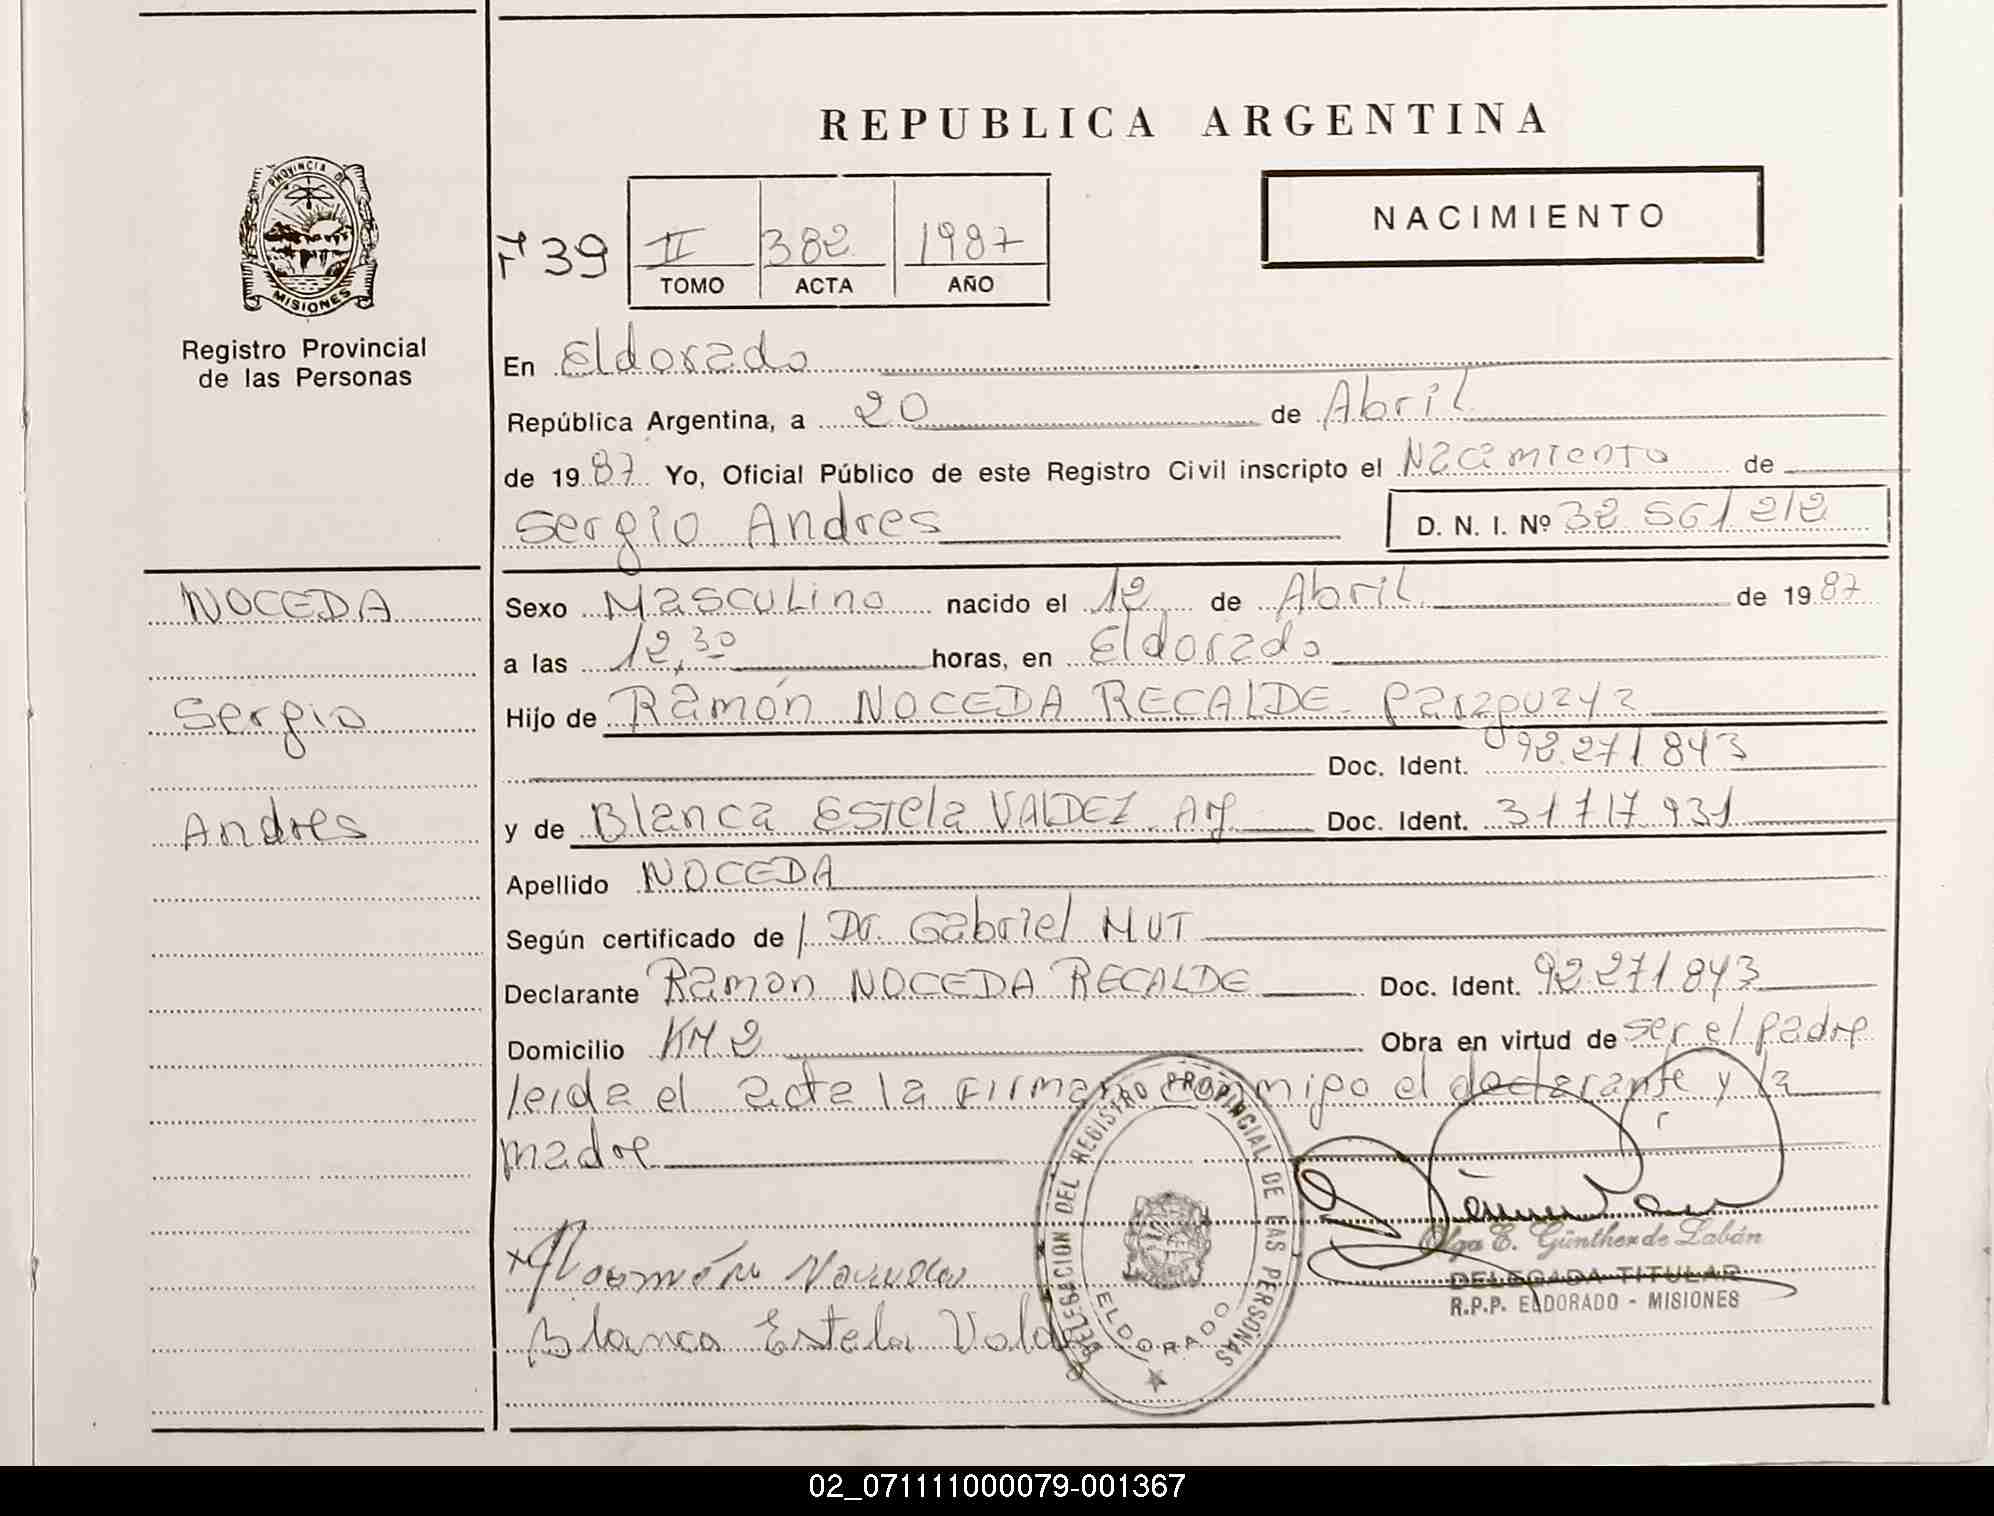 REPUBLICA ARGENTINA
PROVINCIA DE
MISIONES
Registro Provincial
de las Personas
NACIMIENTO
Fº 39 II 382 1987
TOMO ACTA AÑO
En Eldorado
República Argentina, a 20 de Abril
de 1987 Yo, Oficial Público de este Registro Civil inscripto el Nacimiento de
Sergio Andres D. N. I. Nº 32 561 212
NOCEDA
Sergio
Andres
Sexo Masculino nacido el 12 de Abril de 1987
a las 12,30 horas, en Eldorado
Hijo de Ramón NOCEDA RECALDE - Paraguaya
Doc. Ident. 92.271.843
y de Blanca Estela VALDEZ Arg Doc. Ident. 31 717 931
Apellido NOCEDA
Según certificado de Dr. Gabriel MUT
Declarante Ramon NOCEDA RECALDE Doc. Ident. 92.271.843
Domicilio KM 2 Obra en virtud de ser el padre
leida el acta la firman conmigo el declarante y la
madre
DELEGACION DEL REGISTRO PROVINCIAL DE LAS PERSONAS
ELDORADO
Olga E. Günther de Labán
DELEGADA TITULAR
R.P.P. ELDORADO - MISIONES
Blanca Estela Valdez
02_071111000079-001367